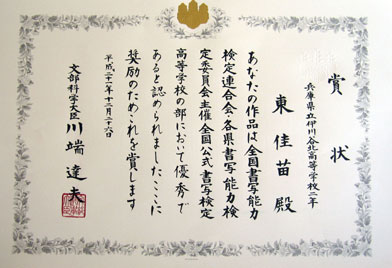 賞状
兵庫県立伊川谷北高等学校二年
東佳苗殿
あなたの作品は全国書写能力
検定連合会・各県書写能力検
定委員会主催全国公式書写検定
高等学校の部において優秀で
あると認められましたここに
奨励のためこれを賞します
平成二十一年十二月二十六日
文部科学大臣 川端達夫